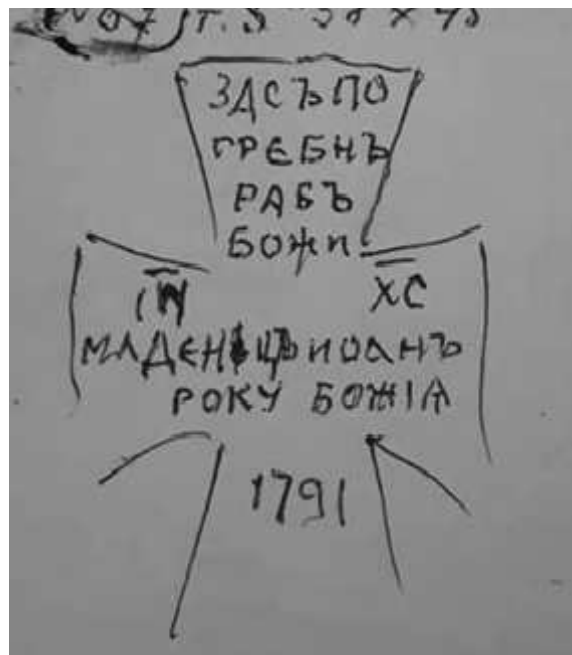 Т.S 38 X 48
ЗДСЪ ПО
ГРЕБНЪ
РАБЪ
БОЖИ
ХС
МЛАДЕНЕЦЪ ИОАНЪ
РОКУ БОЖІѦ
1791